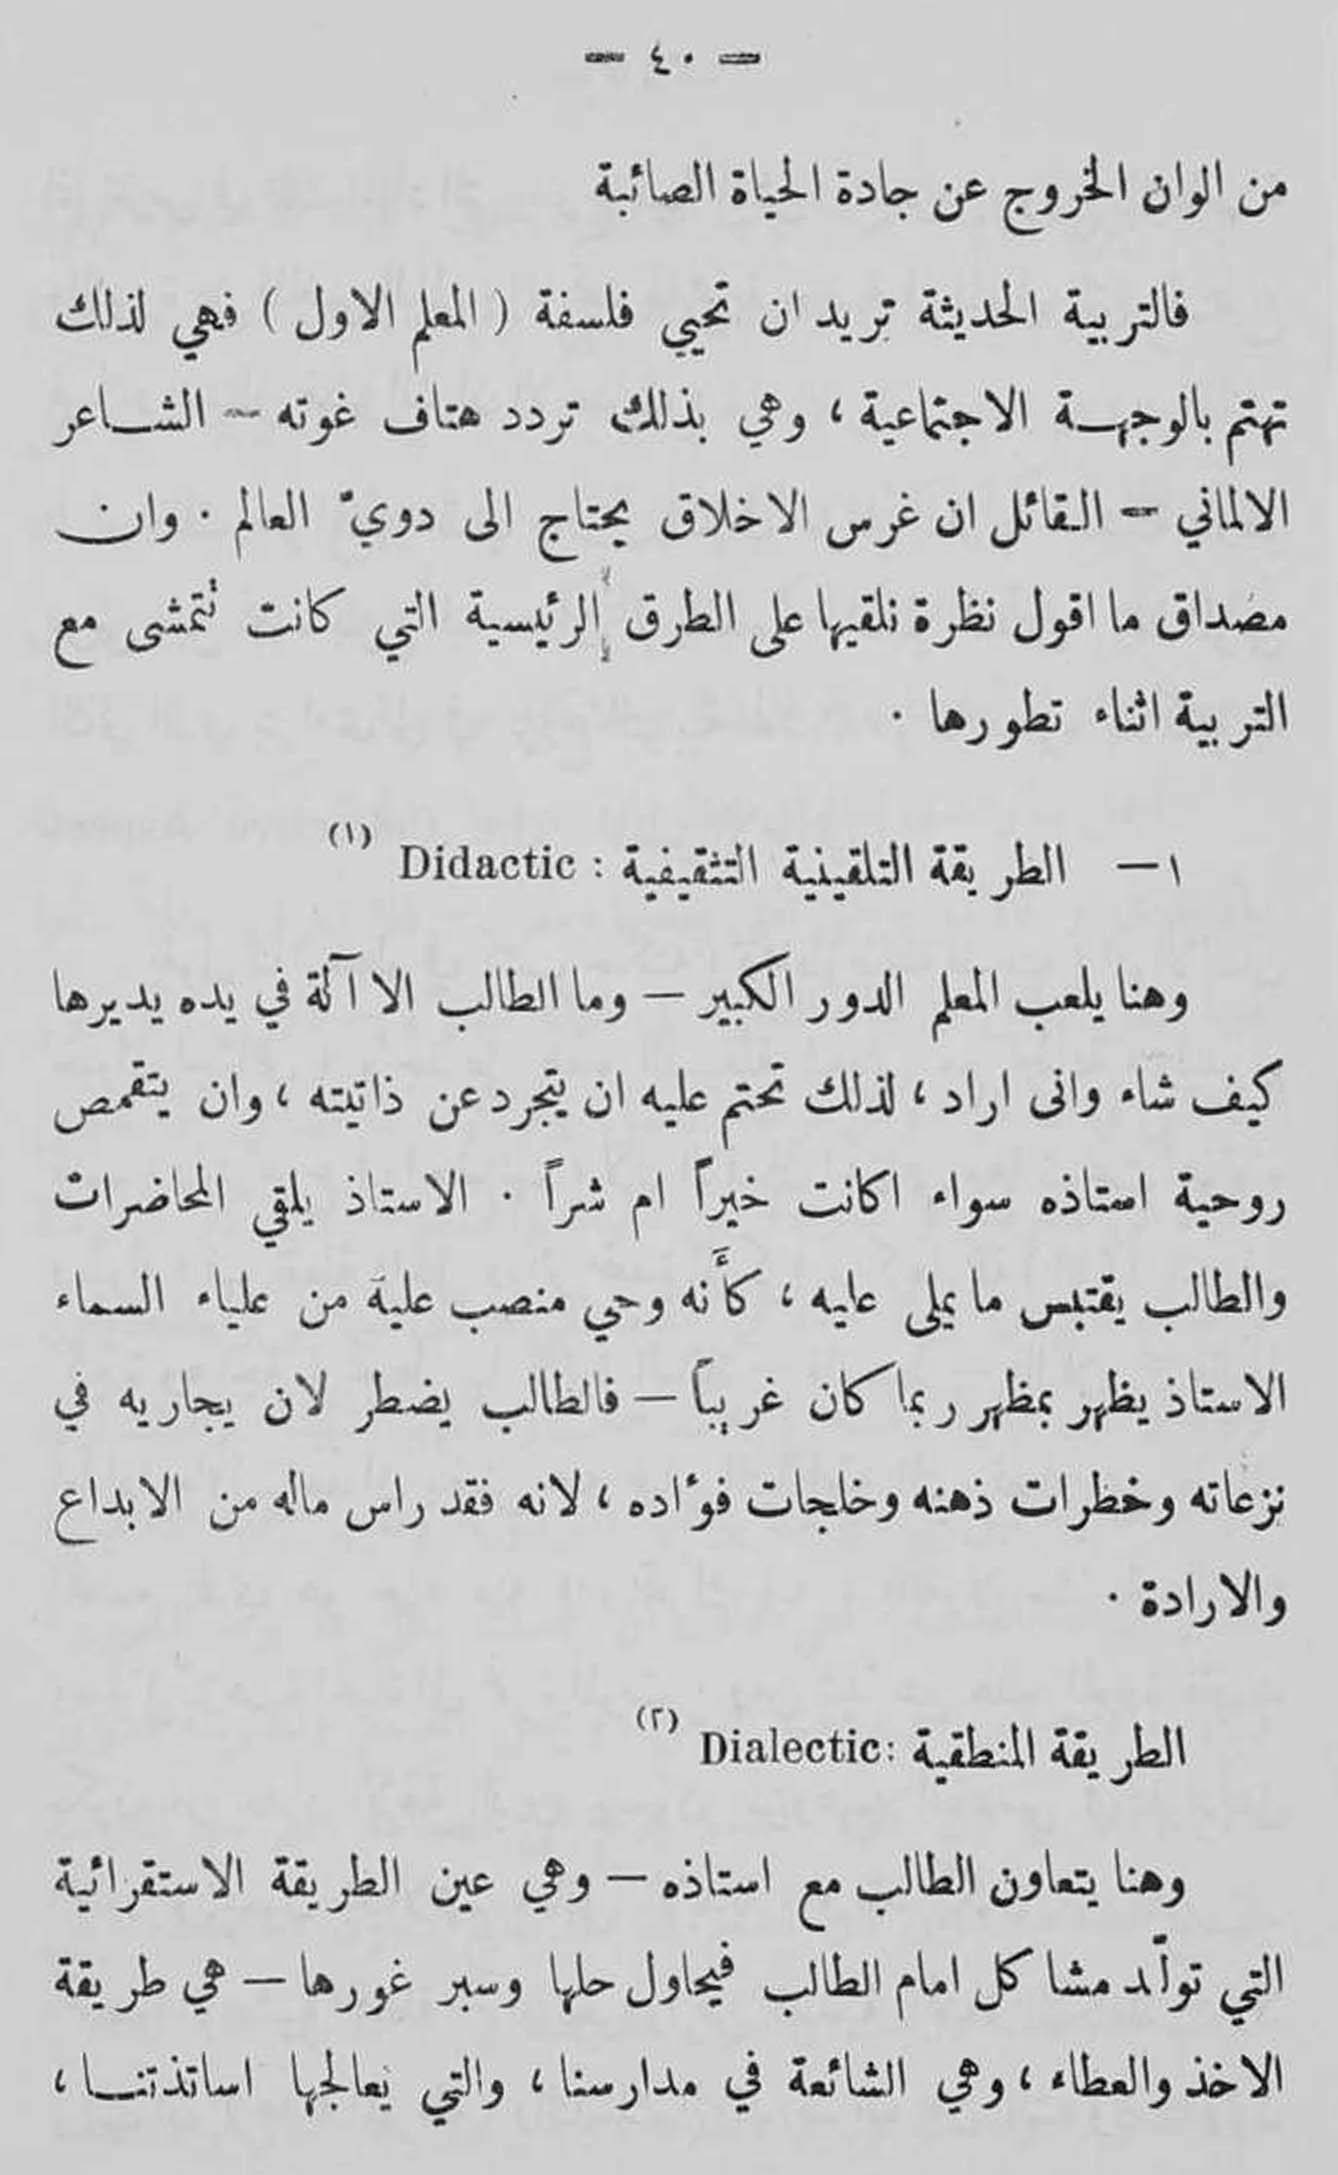 — ٤٠ —
من الوان الخروج عن جادة الحياة الصائبة
فالتربية الحديثة تريد ان تحيي فلسفة ( المعلم الاول ) فهي لذلك
تهتم بالوجهـة الاجتماعية ، وهي بذلك تردد هتاف غوته — الشـاعر
الالماني — القائل ان غرس الاخلاق يحتاج الى دويّ العالم . وان
مصداق ما اقول نظرة نلقيها على الطرق الرئيسية التي كانت تتمشى مع
التربية اثناء تطورها .
١ — الطريقة التلقينية التثقيفية : Didactic (١)
وهنا يلعب المعلم الدور الكبير — وما الطالب الا آلة في يده يديرها
كيف شاء وانى اراد ، لذلك تحتم عليه ان يتجرد عن ذاتيته ، وان يتقمص
روحية استاذه سواء اكانت خيراً ام شراً . الاستاذ يلقي المحاضرات
والطالب يقتبس ما يملى عليه ، كأَنه وحي منصب عليه من علياء السماء
الاستاذ يظهر بمظهر ربما كان غريباً — فالطالب يضطر لان يجاريه في
نزعاته وخطرات ذهنه وخلجات فؤاده ، لانه فقد راس ماله من الابداع
والارادة .
الطريقة المنطقية : Dialectic (٢)
وهنا يتعاون الطالب مع استاذه — وهي عين الطريقة الاستقرائية
التي تولّد مشاكل امام الطالب فيحاول حلها وسبر غورها — هي طريقة
الاخذ والعطاء ، وهي الشائعة في مدارسنا ، والتي يعالجها اساتذتنـا ،